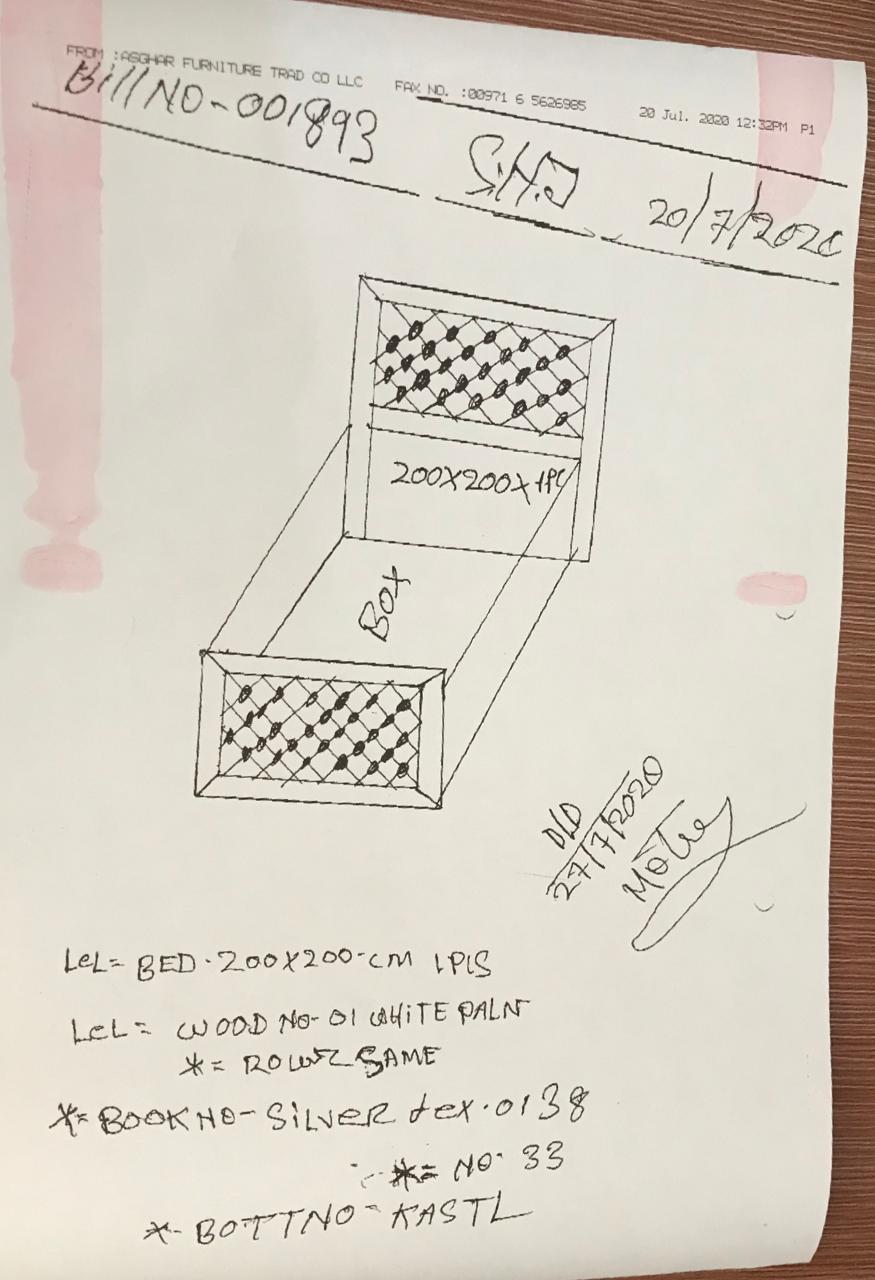 FROM :ASGHAR FURNITURE TRAD CO LLC FAX NO. :00971 6 5626985 20 Jul. 2020 12:32PM P1
Bill NO-001893 S.H.J 20/7/2020
200X200X1PC
BOX
D/D
27/7/2020
LeL= BED.200X200-CM 1PIS
LeL= WOOD NO-01 WHITE PALN
*= SAME
*=BOOK NO-SILVER tex.0138
*= NO. 33
*-BOTTNO-KASTL